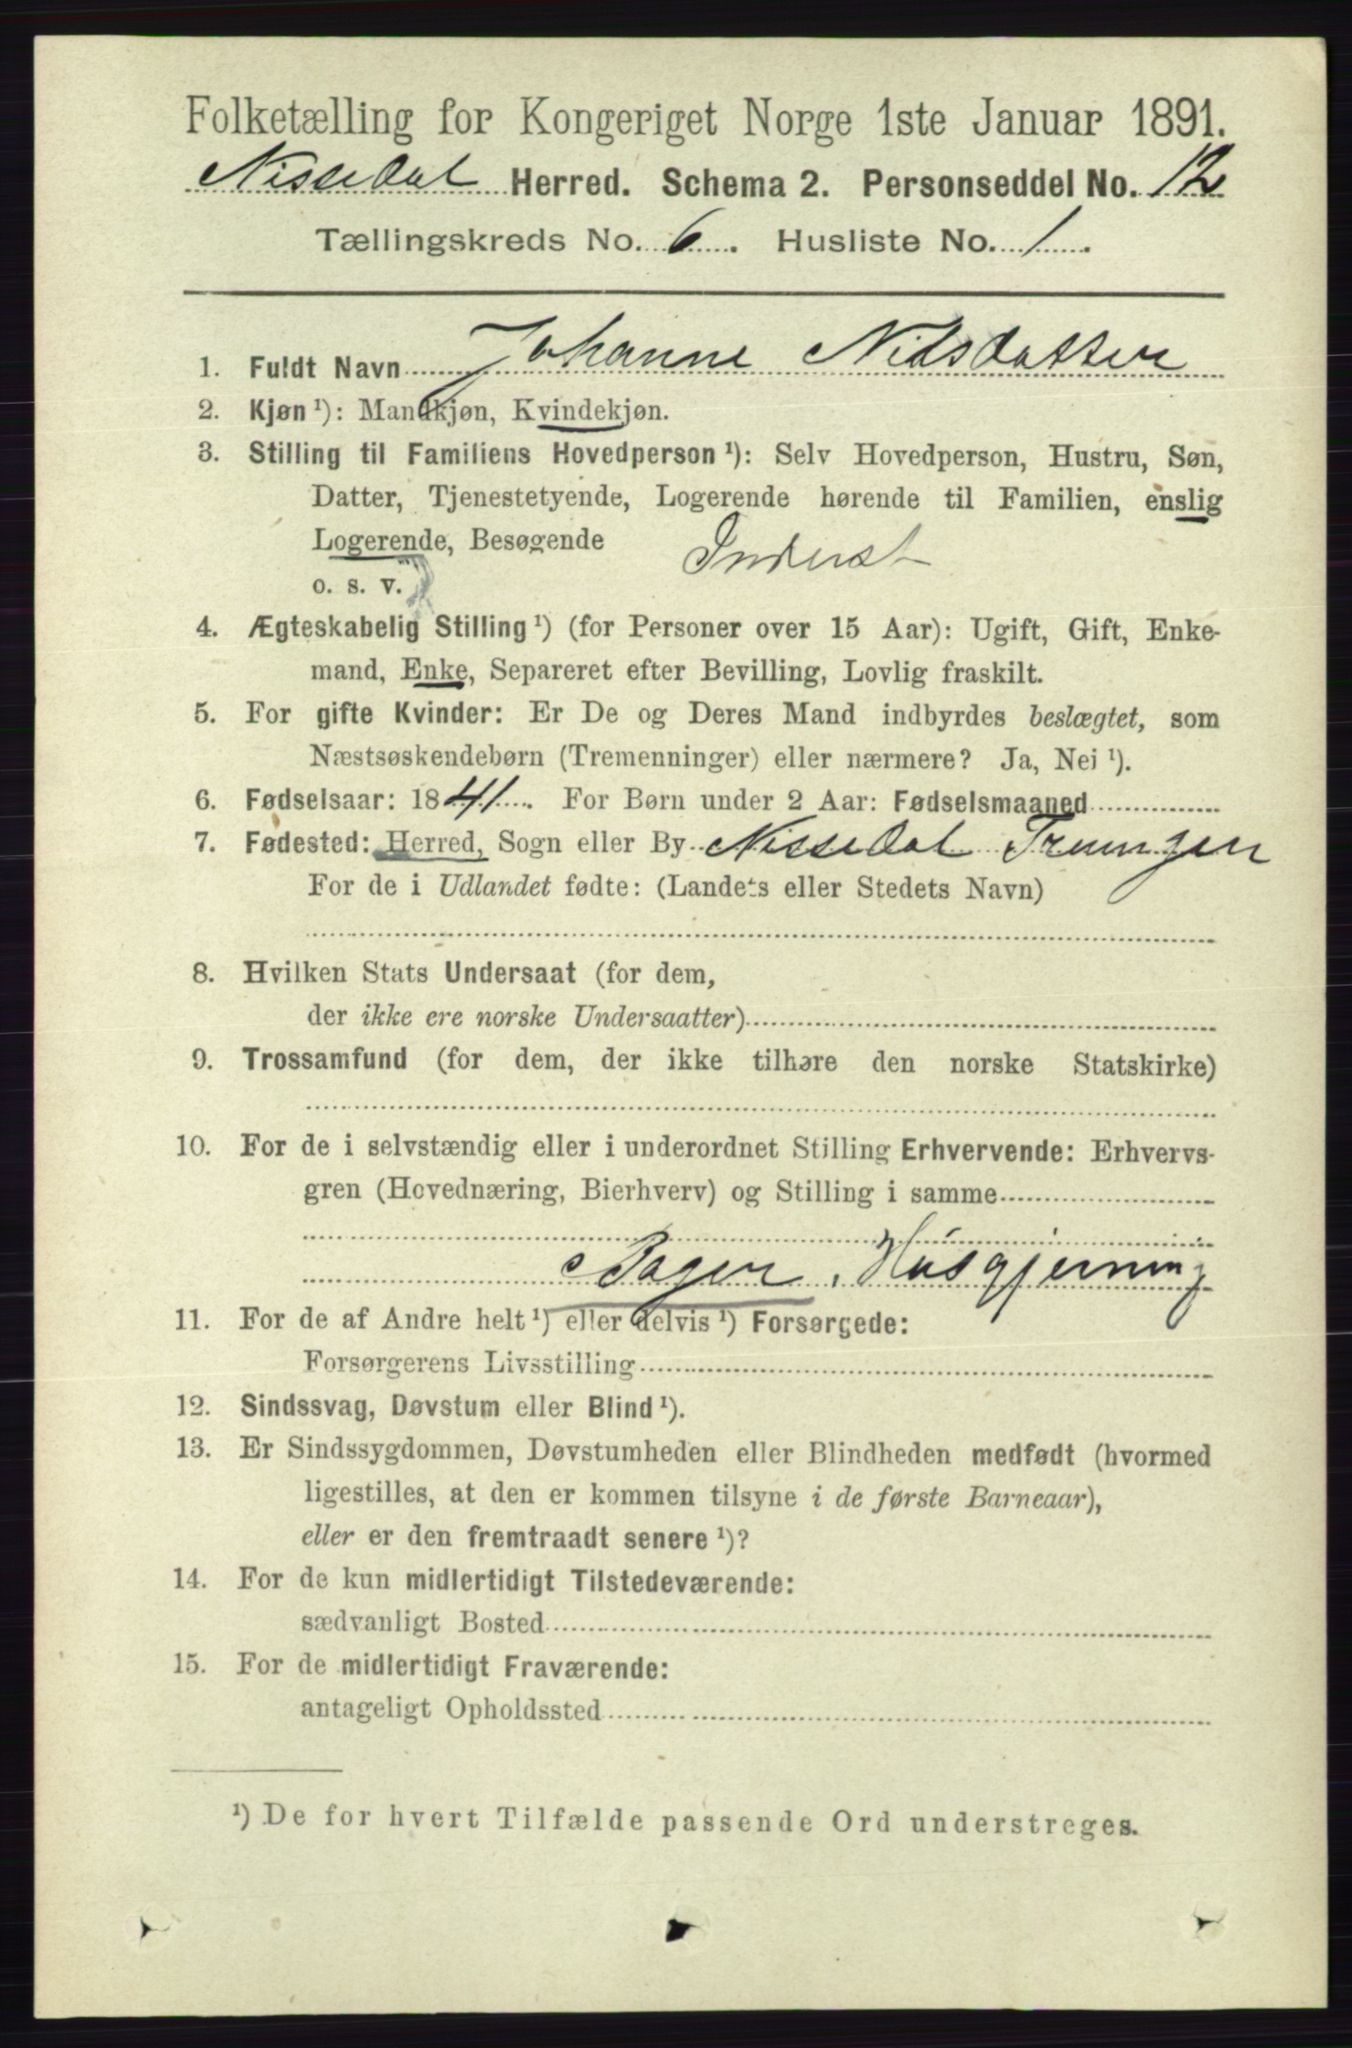 Folketælling for Kongeriget Norge 1ste Januar 1891.
Nissedal Herred. Schema 2. Personseddel No. 12
Tællingskreds No. 6. Husliste No. 1.
1. Fuldt Navn Johanne Nilsdatter
2. Kjøn¹): Mandkjøn, Kvindekjøn.
3. Stilling til Familiens Hovedperson¹): Selv Hovedperson, Hustru, Søn,
Datter, Tjenestetyende, Logerende hørende til Familien, enslig
Logerende, Besøgende Inderst
o. s. v.
4. Ægteskabelig Stilling¹) (for Personer over 15 Aar): Ugift, Gift, Enke-
mand, Enke, Separeret efter Bevilling, Lovlig fraskilt.
5. For gifte Kvinder: Er De og Deres Mand indbyrdes beslægtet, som
Næstsøskendebørn (Tremenninger) eller nærmere? Ja, Nei¹).
6. Fødselsaar: 1841. For Børn under 2 Aar: Fødselsmaaned
7. Fødested: Herred, Sogn eller By Nissedal Treungen
For de i Udlandet fødte: (Landets eller Stedets Navn)
8. Hvilken Stats Undersaat (for dem,
der ikke ere norske Undersaatter)
9. Trossamfund (for dem, der ikke tilhøre den norske Statskirke)
10. For de i selvstændig eller i underordnet Stilling Erhvervende: Erhvervs-
gren (Hovednæring, Bierhverv) og Stilling i samme
Bager, Husgjerning
11. For de af Andre helt¹) eller delvis¹) Forsørgede:
Forsørgerens Livsstilling
12. Sindssvag, Døvstum eller Blind¹).
13. Er Sindssygdommen, Døvstumheden eller Blindheden medfødt (hvormed
ligestilles, at den er kommen tilsyne i de første Barneaar),
eller er den fremtraadt senere¹)?
14. For de kun midlertidigt Tilstedeværende:
sædvanligt Bosted
15. For de midlertidigt Fraværende:
antageligt Opholdssted
¹) De for hvert Tilfælde passende Ord understreges.